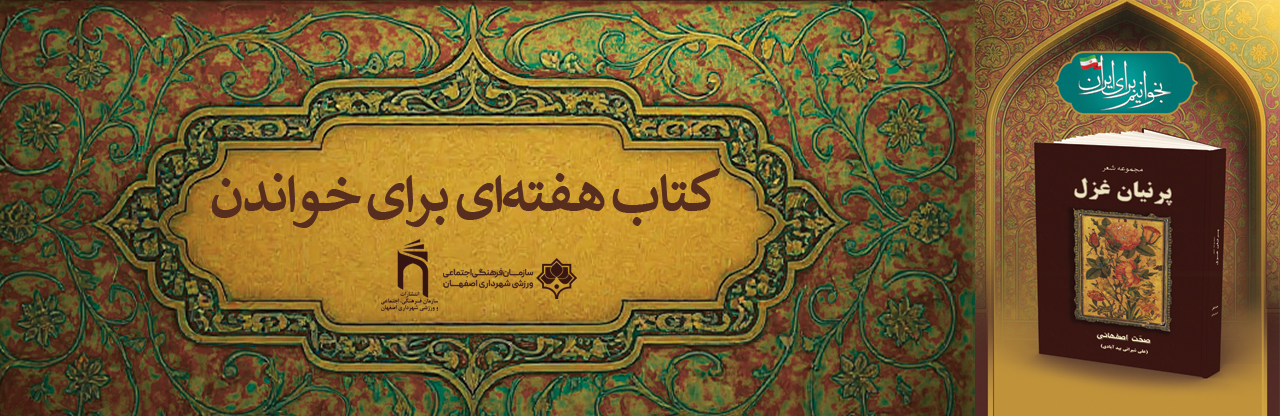 کتاب هفته‌ای برای خواندن
سازمان فرهنگی اجتماعی
ورزشی شهرداری اصفهان
انتشارات
سازمان فرهنگی، اجتماعی
و ورزشی شهرداری اصفهان
بخوانیم برای ایران
مجموعه شعر
پرنیان غزل
صفت اصفهانی
(علی شیرانی بید آبادی)